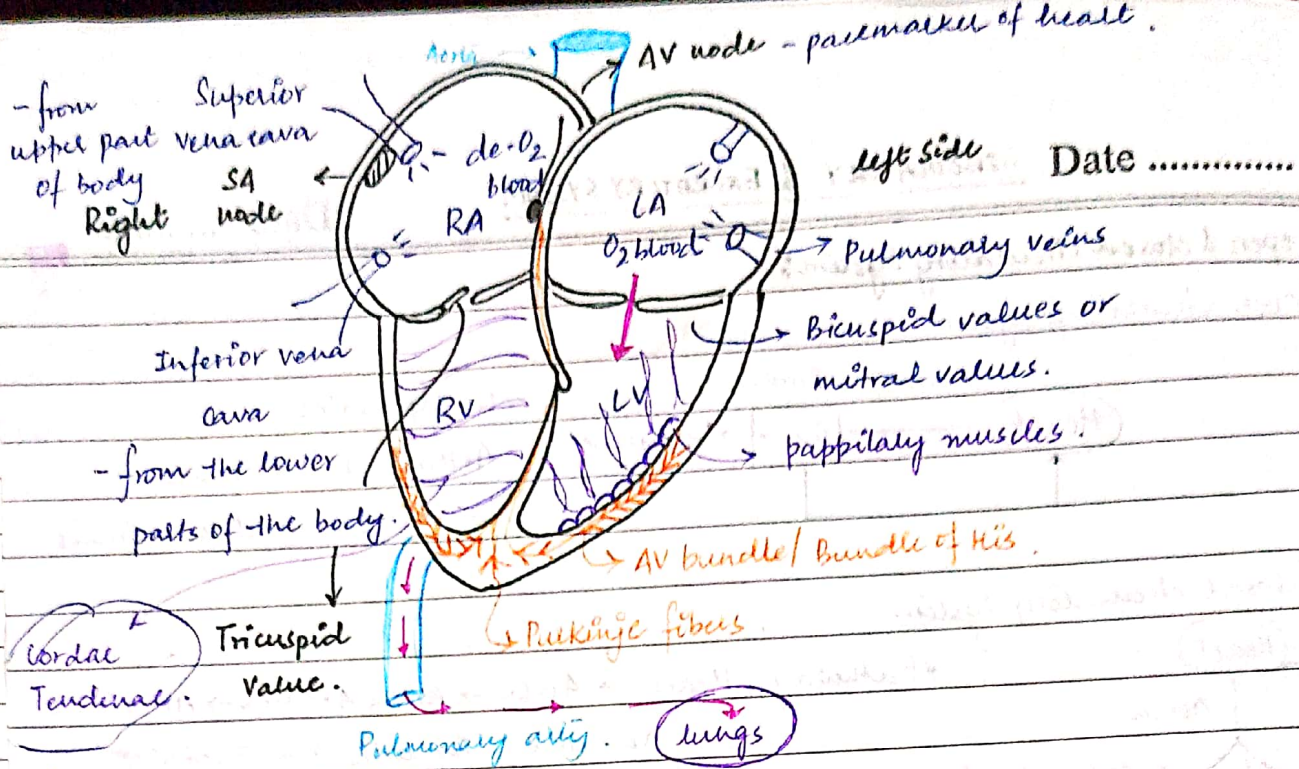 Aorta
AV node - pacemaker of heart.
- from
upper part
of body
Superior
vena cava
SA
node
Right
de-O2
blood
RA
LA
O2 blood
left side
Date ..............
Pulmonary veins
Bicuspid values or
mitral values.
Inferior vena
cava
- from the lower
parts of the body.
RV
LV
pappilary muscles.
AV bundle/ Bundle of His.
Purkinje fibers
Cordae
Tendinae.
Tricuspid
Value.
Pulmonary arty.
lungs